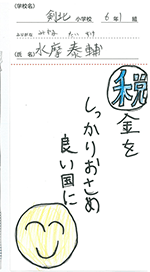 (学校名)
剣北 小学校 6年1組
ふりがな みずま たいすけ
(氏名) 水摩 泰輔
税金を
しっかりおさめ
良い国に